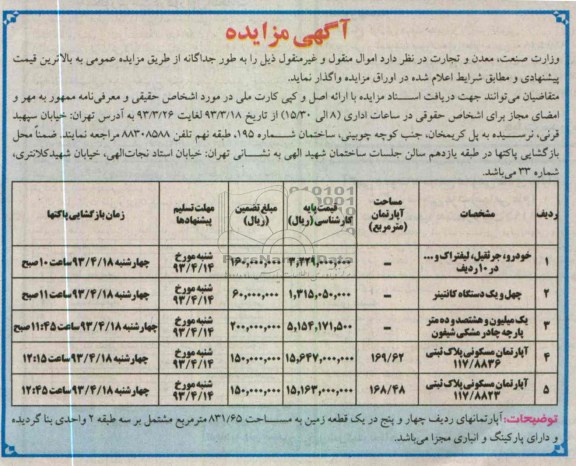 آگهی مزایده
وزارت صنعت، معدن و تجارت در نظر دارد اموال منقول و غیرمنقول ذیل را به طور جداگانه از طریق مزایده عمومی به بالاترین قیمت
پیشنهادی و مطابق شرایط اعلام شده در اوراق مزایده واگذار نماید.
متقاضیان می‌توانند جهت دریافت اسناد مزایده با ارائه اصل و کپی کارت ملی در مورد اشخاص حقیقی و معرفی‌نامه ممهور به مهر و
امضای مجاز برای اشخاص حقوقی در ساعات اداری (۸ الی ۱۵/۳۰) از تاریخ ۹۳/۳/۱۸ لغایت ۹۳/۳/۲۶ به آدرس تهران: خیابان سپهبد
قرنی، نرسیده به پل کریمخان، جنب کوچه چوبینی، ساختمان شماره ۱۹۵، طبقه نهم تلفن ۸۸۳۰۸۵۸۸ مراجعه نمایند. ضمناً محل
بازگشایی پاکتها در طبقه یازدهم سالن جلسات ساختمان شهید الهی به نشانی تهران: خیابان استاد نجات‌الهی، خیابان شهیدکلانتری،
شماره ۳۳ می‌باشد.
ردیف مشخصات مساحت آپارتمان (مترمربع) قیمت پایه کارشناسی (ریال) مبلغ تضمین (ریال) مهلت تسلیم پیشنهادها زمان بازگشایی پاکتها
۱ خودرو، جرثقیل، لیفتراک و ... در ۱۰ ردیف – ۱۶۰,۰۰۰,۰۰۰ شنبه مورخ ۹۳/۴/۱۴ چهارشنبه ۹۳/۴/۱۸ ساعت ۱۰ صبح
۲ چهل و یک دستگاه کانتینر – ۱,۳۱۵,۰۵۰,۰۰۰ ۶۰,۰۰۰,۰۰۰ شنبه مورخ ۹۳/۴/۱۴ چهارشنبه ۹۳/۴/۱۸ ساعت ۱۱ صبح
۳ یک میلیون و هشتصد و ده متر پارچه چادر مشکی شیفون – ۵,۱۵۴,۱۷۱,۵۰۰ ۲۰۰,۰۰۰,۰۰۰ شنبه مورخ ۹۳/۴/۱۴ چهارشنبه ۹۳/۴/۱۸ ساعت ۱۱:۴۵ صبح
۴ آپارتمان مسکونی پلاک ثبتی ۱۱۷/۸۸۳۶ ۱۶۹/۶۲ ۱۵,۶۴۷,۰۰۰,۰۰۰ ۱۵۰,۰۰۰,۰۰۰ شنبه مورخ ۹۳/۴/۱۴ چهارشنبه ۹۳/۴/۱۸ ساعت ۱۲:۱۵
۵ آپارتمان مسکونی پلاک ثبتی ۱۱۷/۸۸۲۳ ۱۶۸/۴۸ ۱۵,۱۶۳,۰۰۰,۰۰۰ ۱۵۰,۰۰۰,۰۰۰ شنبه مورخ ۹۳/۴/۱۴ چهارشنبه ۹۳/۴/۱۸ ساعت ۱۲:۴۵
توضیحات: آپارتمانهای ردیف چهار و پنج در یک قطعه زمین به مساحت ۸۳۱/۶۵ مترمربع مشتمل بر سه طبقه ۲ واحدی بنا گردیده
و دارای پارکینگ و انباری مجزا می‌باشد.